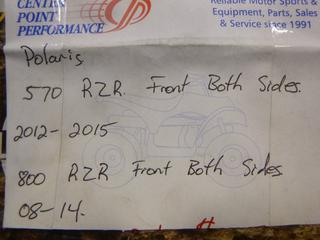 CENTER
POINT
PERFORMANCE
Reliable Motor Sports &
Equipment, Parts, Sales
& Service since 1991
Polaris
570 RZR. Front Both Sides.
2012- 2015
800 RZR Front Both Sides
08-14.